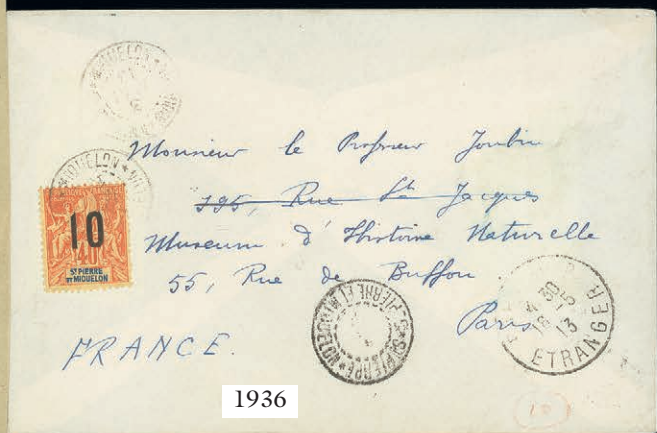 MIQUELON
MIQUELON
10
40
ST PIERRE
ET MIQUELON
Monsieur le Professeur Joubin
195, Rue St Jacques
Museum d'Histoire Naturelle
55, Rue de Buffon
Paris
FRANCE.
ST PIERRE ET MIQUELON
ST PIERRE
30
5
13
ETRANGER
1936